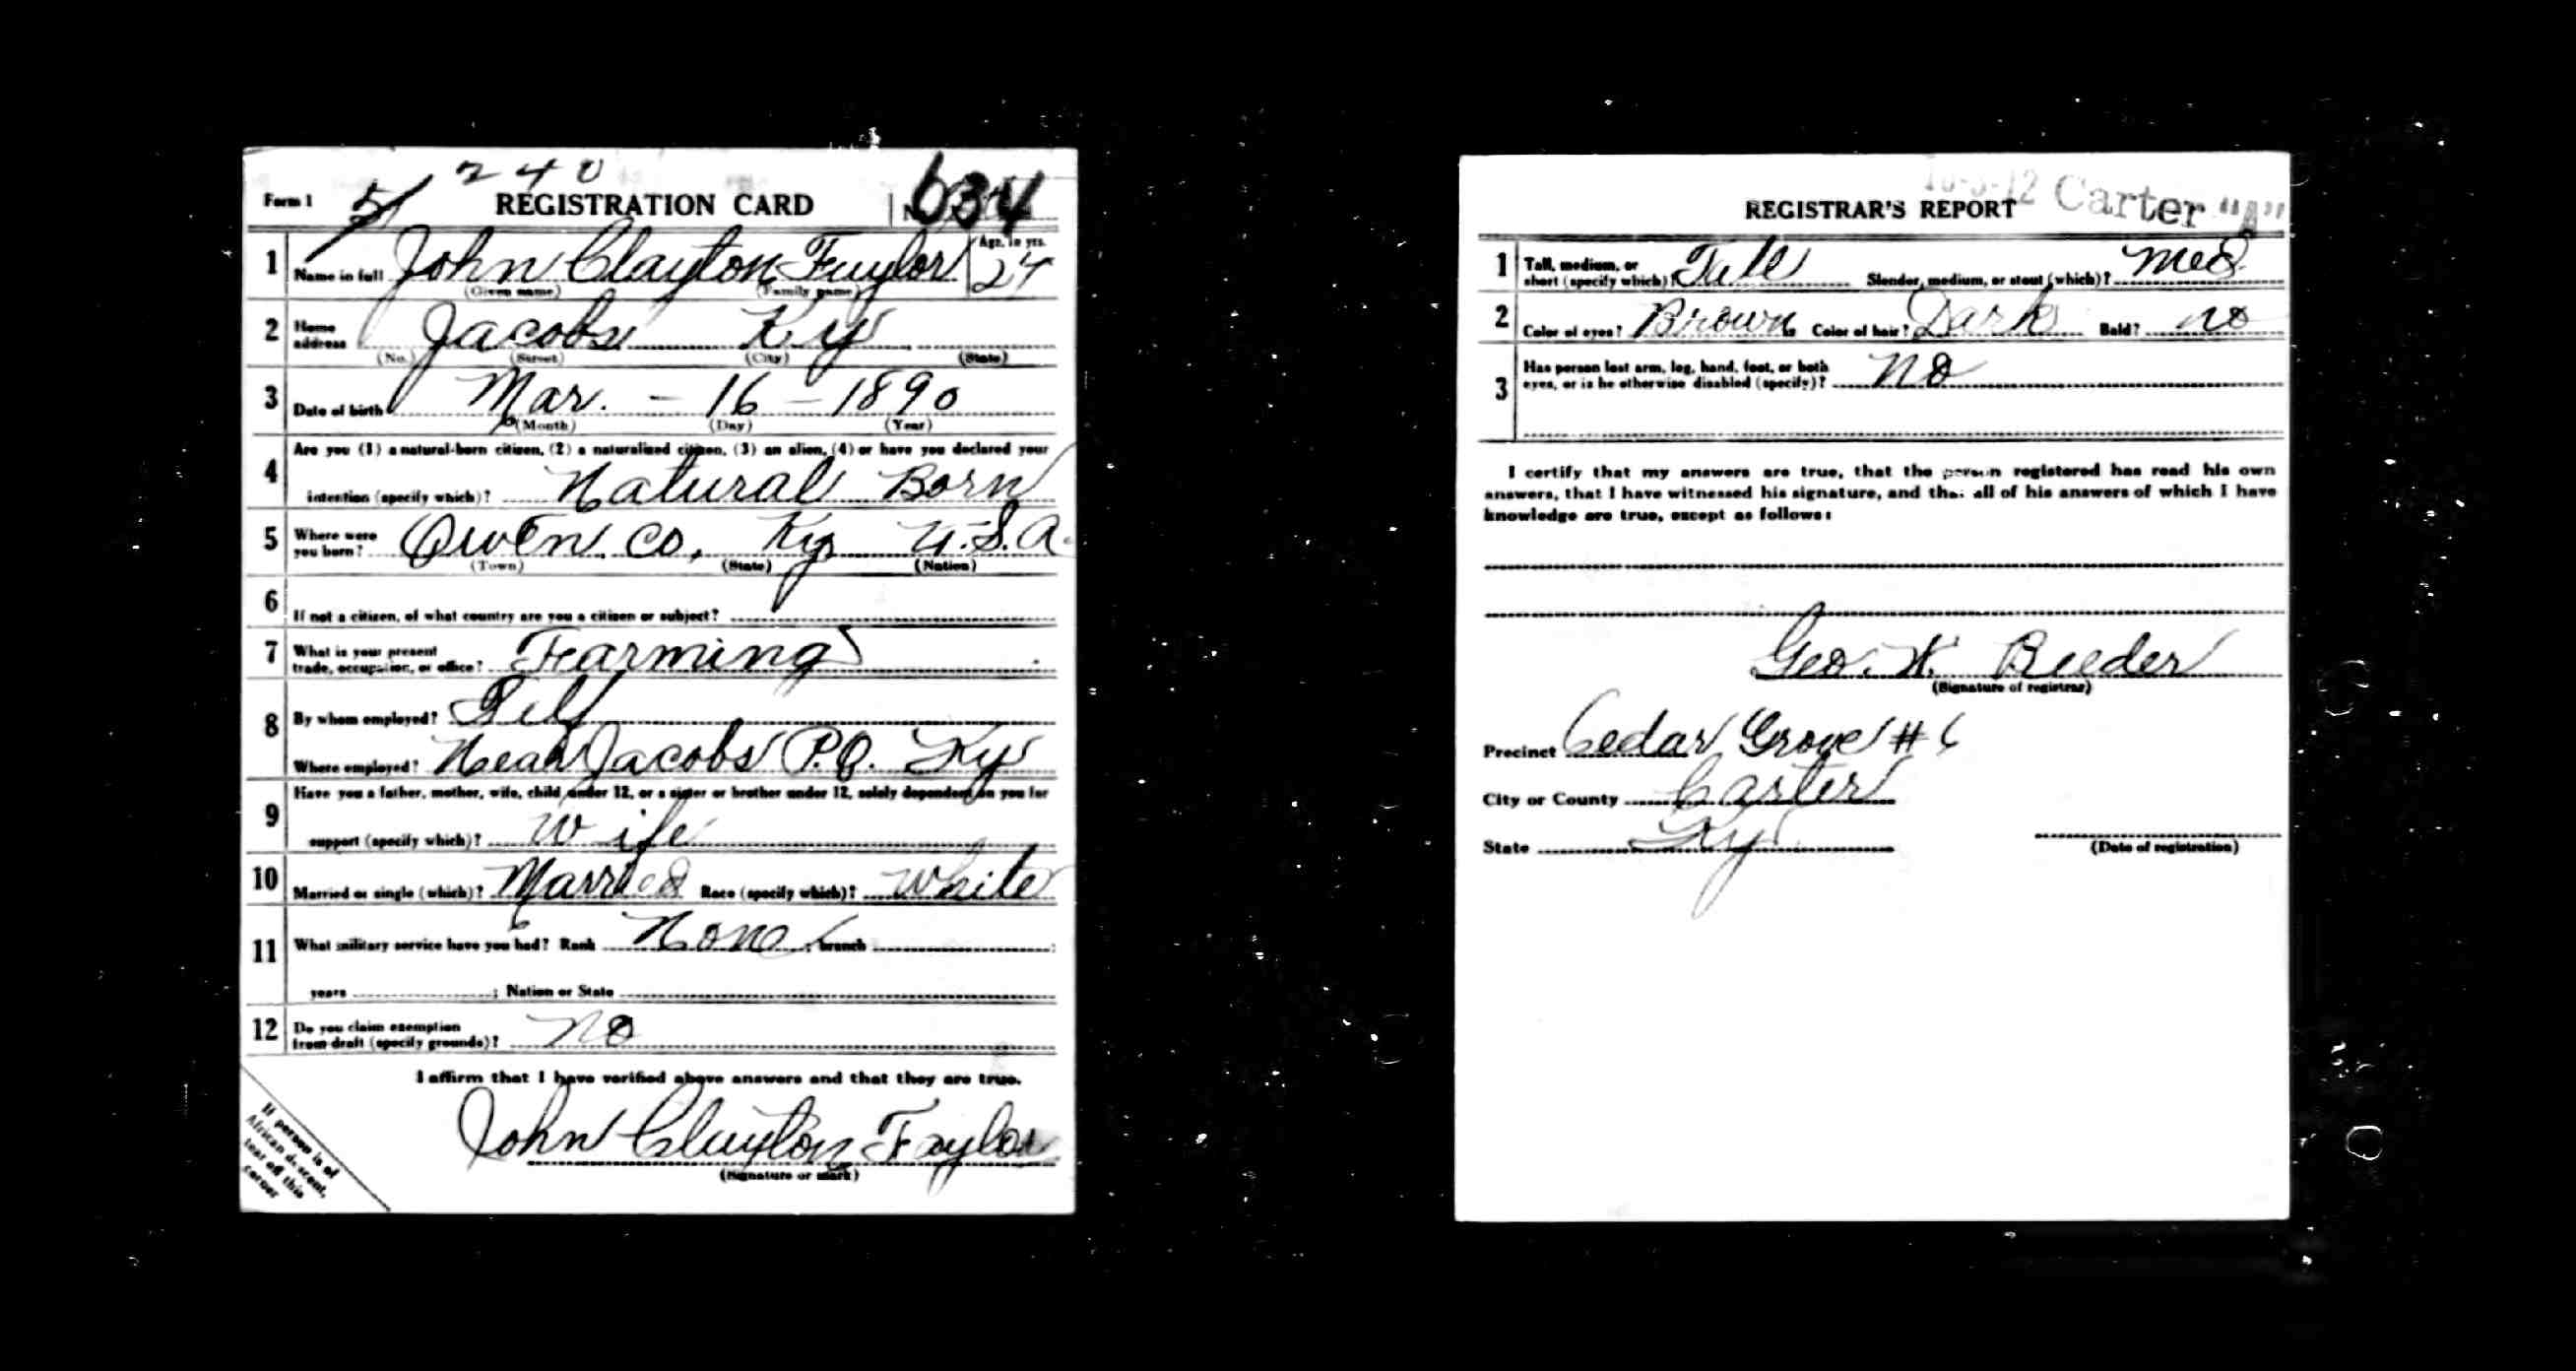 240
Form 1 51 REGISTRATION CARD 634
1 Name in full John Clayton Faylor Age, in yrs. 27
(Given name) (Family name)
2 Home address Jacobs Ky
(No.) (Street) (City) (State)
3 Date of birth Mar. - 16 - 1890
(Month) (Day) (Year)
4 Are you (1) a natural-born citizen, (2) a naturalized citizen, (3) an alien, (4) or have you declared your
intention (specify which)? Natural Born
5 Where were you born? Owen Co. Ky U.S.A.
(Town) (State) (Nation)
6 If not a citizen, of what country are you a citizen or subject?
7 What is your present trade, occupation, or office? Farming
8 By whom employed? Self
Where employed? Near Jacobs P.O. Ky
9 Have you a father, mother, wife, child under 12, or a sister or brother under 12, solely dependent on you for
support (specify which)? Wife
10 Married or single (which)? Married Race (specify which)? White
11 What military service have you had? Rank None; branch
years ; Nation or State
12 Do you claim exemption from draft (specify grounds)? No
I affirm that I have verified above answers and that they are true.
John Clayton Faylor
(Signature or mark)
If person is of
African descent,
tear off this
corner
Carter "A"
REGISTRAR'S REPORT
1 Tall, medium, or short (specify which)? Tall Slender, medium, or stout (which)? Med
2 Color of eyes? Brown Color of hair? Dark Bald? no
3 Has person lost arm, leg, hand, foot, or both eyes, or is he otherwise disabled (specify)? No
I certify that my answers are true, that the person registered has read his own
answers, that I have witnessed his signature, and that all of his answers of which I have
knowledge are true, except as follows:
Geo. W. Reeder
(Signature of registrar)
Precinct Cedar Grove # 6
City or County Carter
State Ky
(Date of registration)